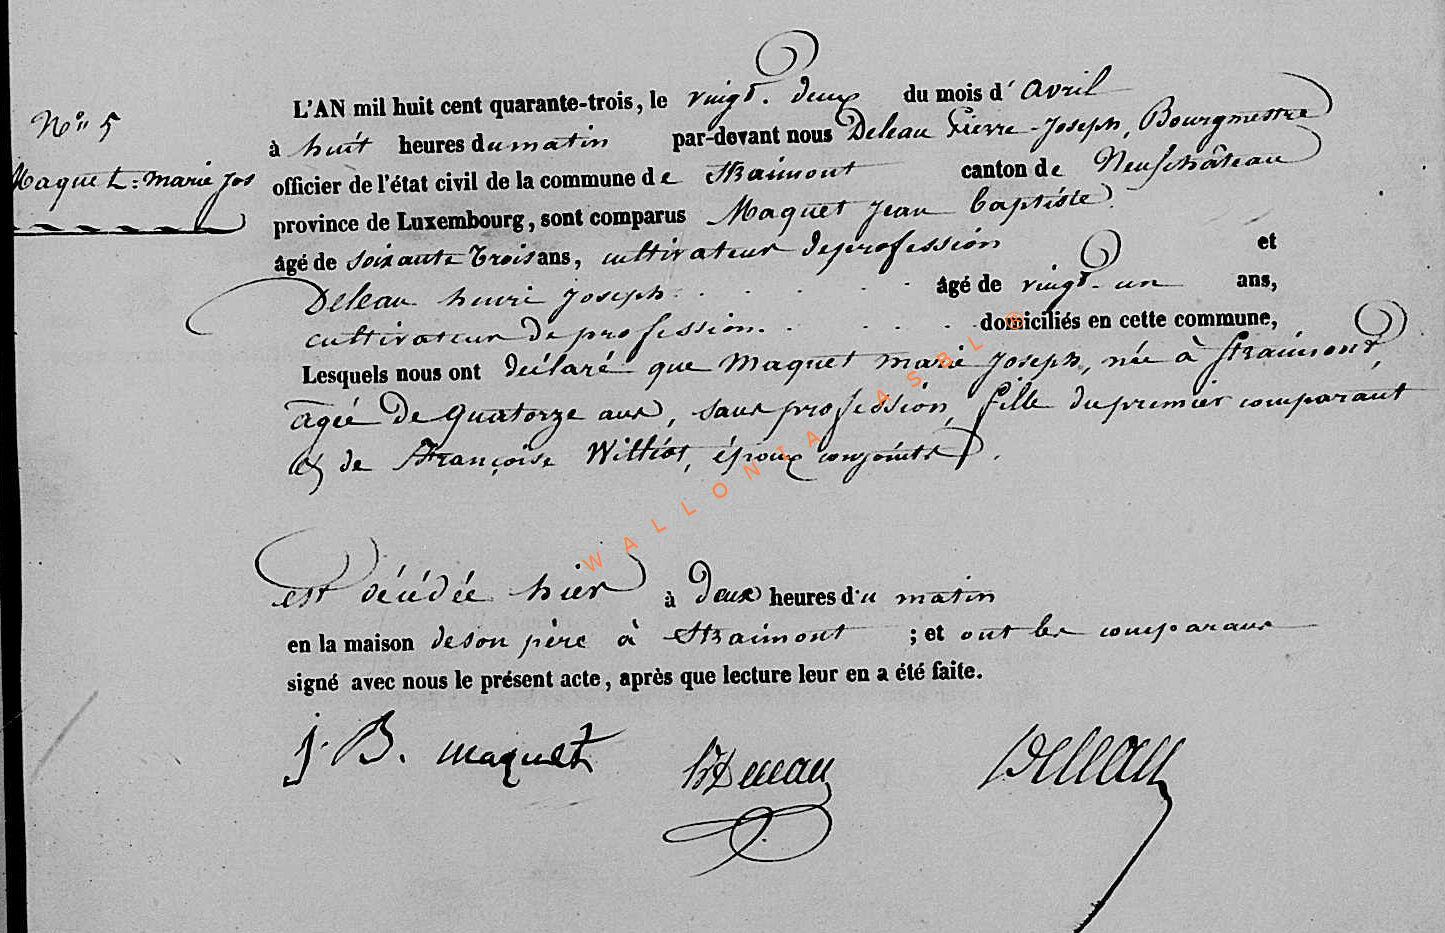 N° 5
Maquet Marie Jos
L'AN mil huit cent quarante-trois, le vingt-deux du mois d'avril
à huit heures du matin par-devant nous Deleau Pierre-Joseph, Bourgmestre
officier de l'état civil de la commune de Straimont canton de Neufchâteau
province de Luxembourg, sont comparus Maquet Jean baptiste
âgé de soixante trois ans, cultivateur de profession et
Deleau henri Joseph . . . . . âgé de vingt-un ans,
cultivateur de profession. . . . . . domiciliés en cette commune,
Lesquels nous ont déclaré que Maquet marie Joseph, née à Straimont,
agée de quatorze ans, sans profession, fille du premier comparant
et de Françoise Williot, époux conjoints.
est décédée hier à deux heures du matin
en la maison de son père à Straimont ; et ont les comparans
signé avec nous le présent acte, après que lecture leur en a été faite.
J. B. maquet Deleau
WALLONIA ASBL ©